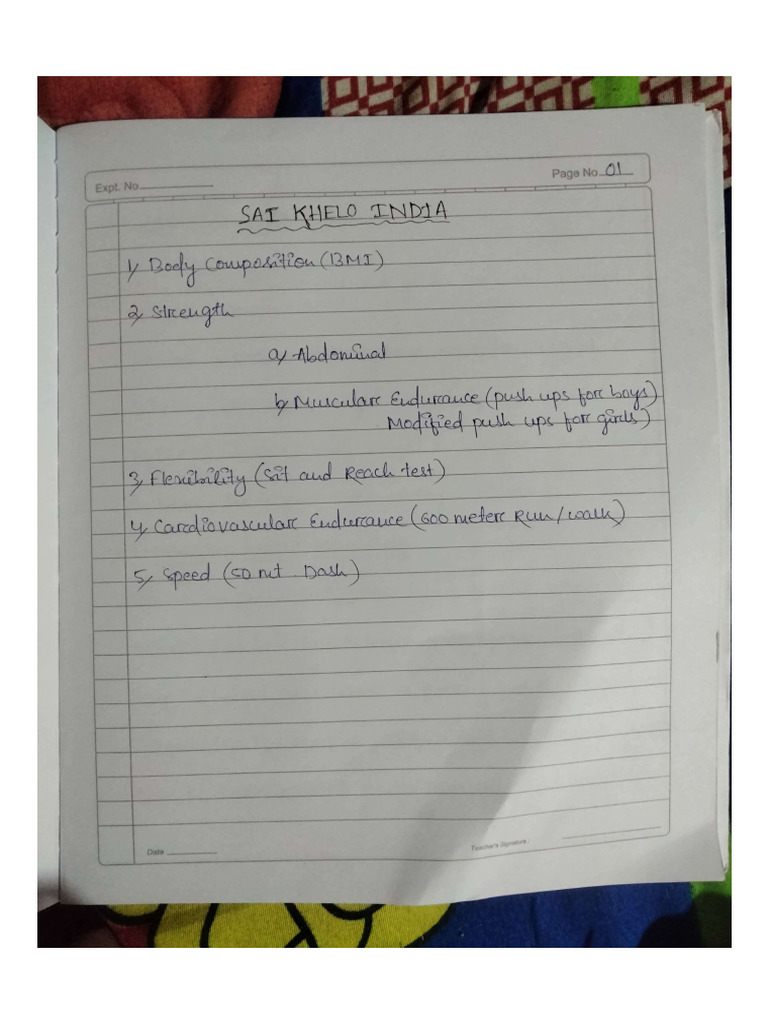 Expt. No.
Page No. 01
SAI KHELO INDIA
1) Body Composition (BMI)
2) Strength
a) Abdominal
b) Muscular Endurance (push ups for boys)
Modified push ups for girls)
3) Flexibility (Sit and Reach test)
4) Cardiovascular Endurance (600 meter Run/walk)
5) Speed (50 mt. Dash)
Date
Teacher's Signature :